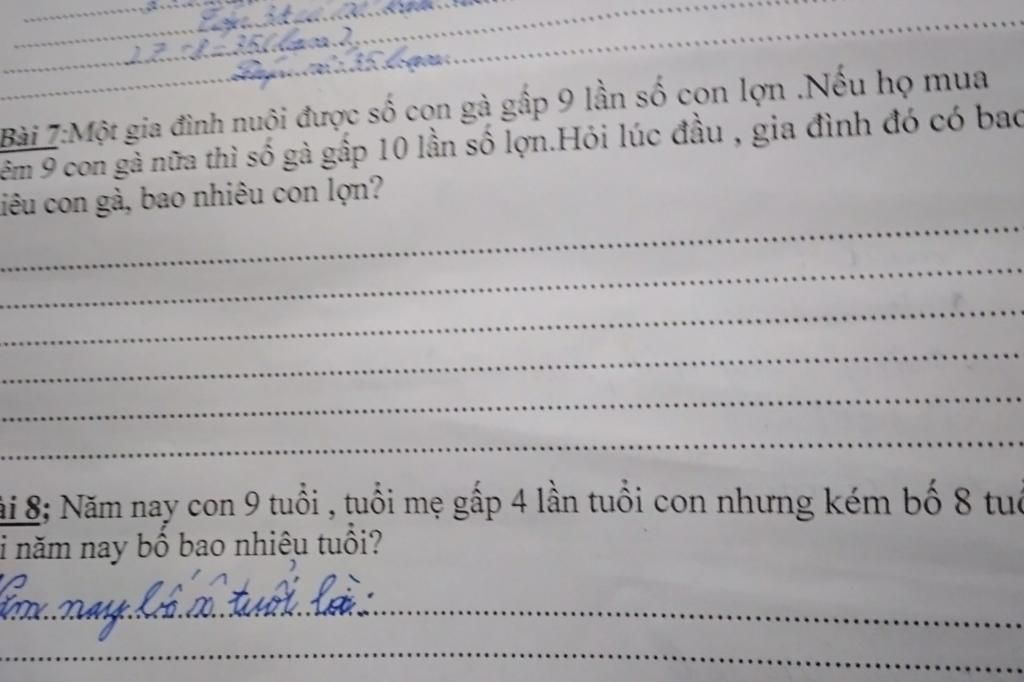 17 … = 35 (bạn)
Đáp số: 35 bạn
Bài 7:Một gia đình nuôi được số con gà gấp 9 lần số con lợn .Nếu họ mua
êm 9 con gà nữa thì số gà gấp 10 lần số lợn.Hỏi lúc đầu , gia đình đó có bao
iêu con gà, bao nhiêu con lợn?
ài 8; Năm nay con 9 tuổi , tuổi mẹ gấp 4 lần tuổi con nhưng kém bố 8 tuổ
i năm nay bố bao nhiêu tuổi?
năm nay bố số tuổi là: